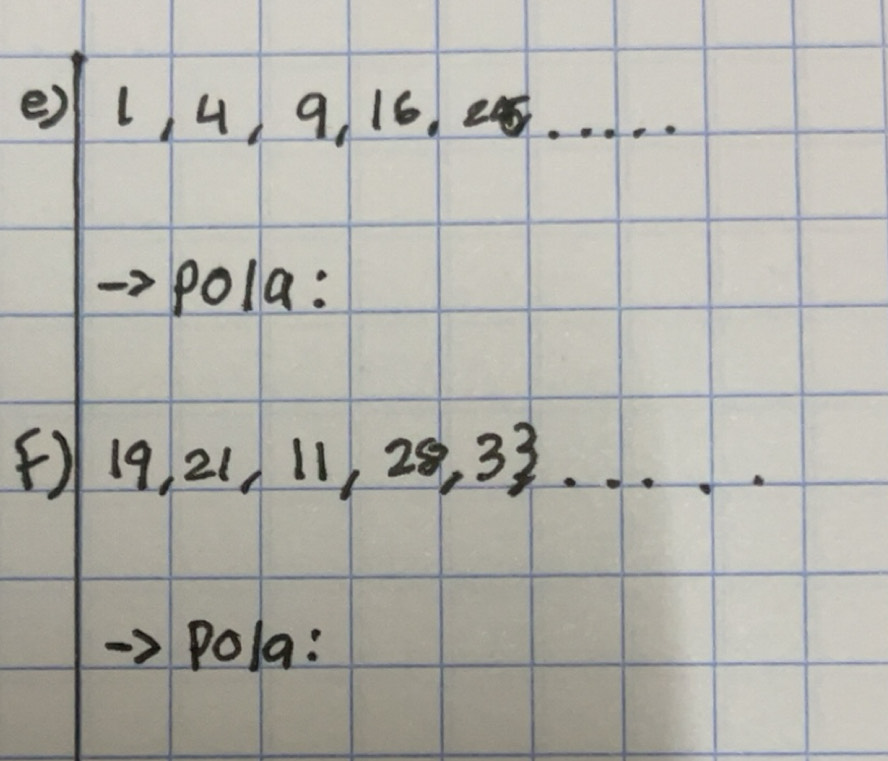 e) 1, 4, 9, 16, 25.....
-> pola:
f) 19, 21, 11, 28, 33.....
-> pola: